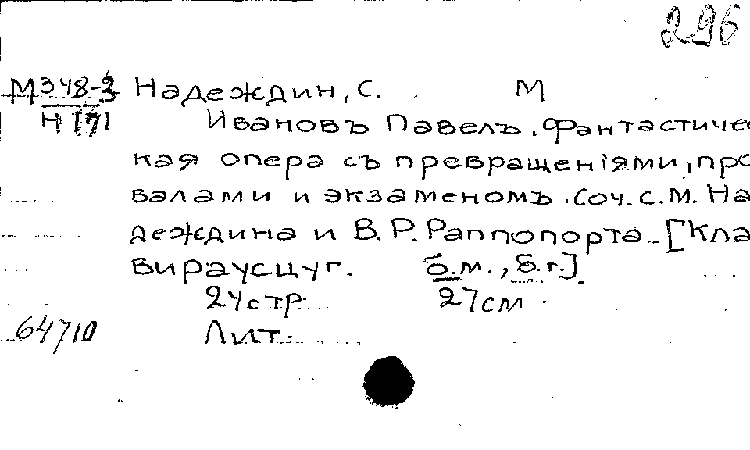 296
М348-3 Надеждин, С. М
Н 171 Ивановъ Павелъ. Фантастичес
кая опера съ превращенiями, про
валами и экзаменомъ. Соч. С. М. На
деждина и В. Р. Раппопорта. [Кла
вираусцуг. б.м., б.г.].
24 стр 27 см
64710 Лит.